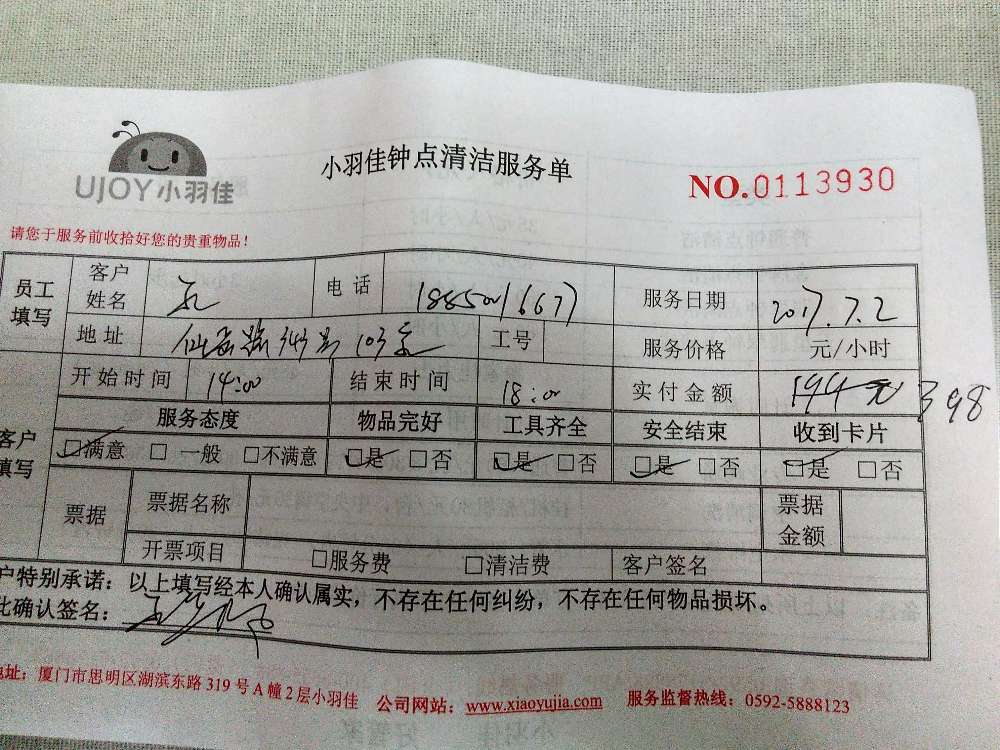 UJOY小羽佳
小羽佳钟点清洁服务单
NO.0113930
请您于服务前收拾好您的贵重物品!
员工填写 客户姓名 电话 服务日期 2017.7.2
地址 工号 服务价格 元/小时
开始时间 14:00 结束时间 18:00 实付金额 398
客户填写 服务态度 物品完好 工具齐全 安全结束 收到卡片
☑满意 □一般 □不满意 ☑是 □否 ☑是 □否 ☑是 □否 ☑是 □否
票据 票据名称 票据金额
开票项目 □服务费 □清洁费 客户签名
户特别承诺：以上填写经本人确认属实，不存在任何纠纷，不存在任何物品损坏。
此确认签名：
地址：厦门市思明区湖滨东路319号A幢2层小羽佳 公司网站：www.xiaoyujia.com 服务监督热线：0592-5888123